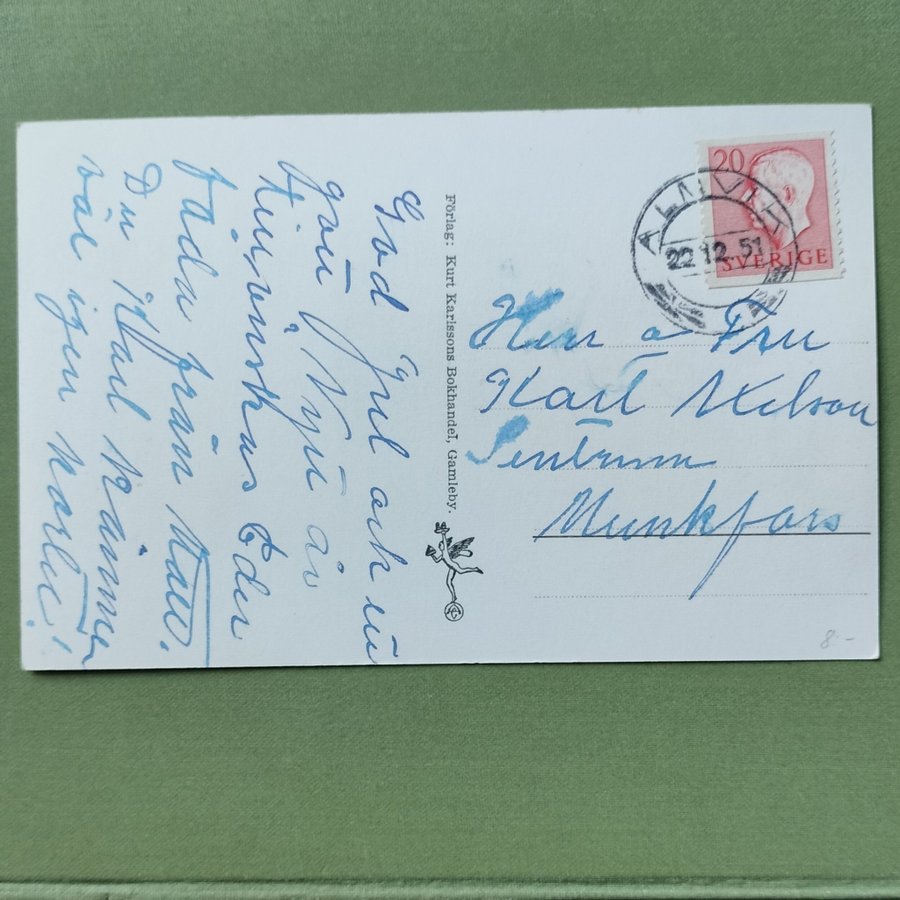 God Jul och ett
gott Nytt år
tillönskas Eder
från
Du Karl känner
väl igen Kortet!
Förlag: Kurt Karlssons Bokhandel, Gamleby.
20
SVERIGE
ALMVIK
22.12.51
Herr o Fru
Karl Nelson
Sentrum
Munkfors
8:-